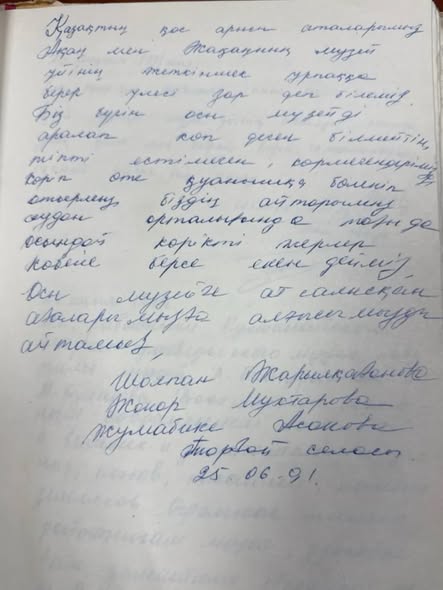 Қазақтың қос арысы аталарымыз
Ақаң мен Жақаңның музей
үйінің жеткіншек ұрпаққа
берер үлесі зор деп білеміз.
Біз бүгін осы музейді
аралап көп деген білмейтін,
тіпті естімеген, көрмегендерімізді
көріп өте қуанышқа бөленіп
отырмыз біздің айтарымыз
аудан орталығында тағы да
осындай көрікті жерлер
көбейе берсе екен дейміз
Осы музейге ат салысқан
ағаларымызға алғысымызды
айтамыз,
Шолпан Жарылқасынова
Жанар Мухтарова
Жумабике Асанова
Торғай селосы.
25 06-91.